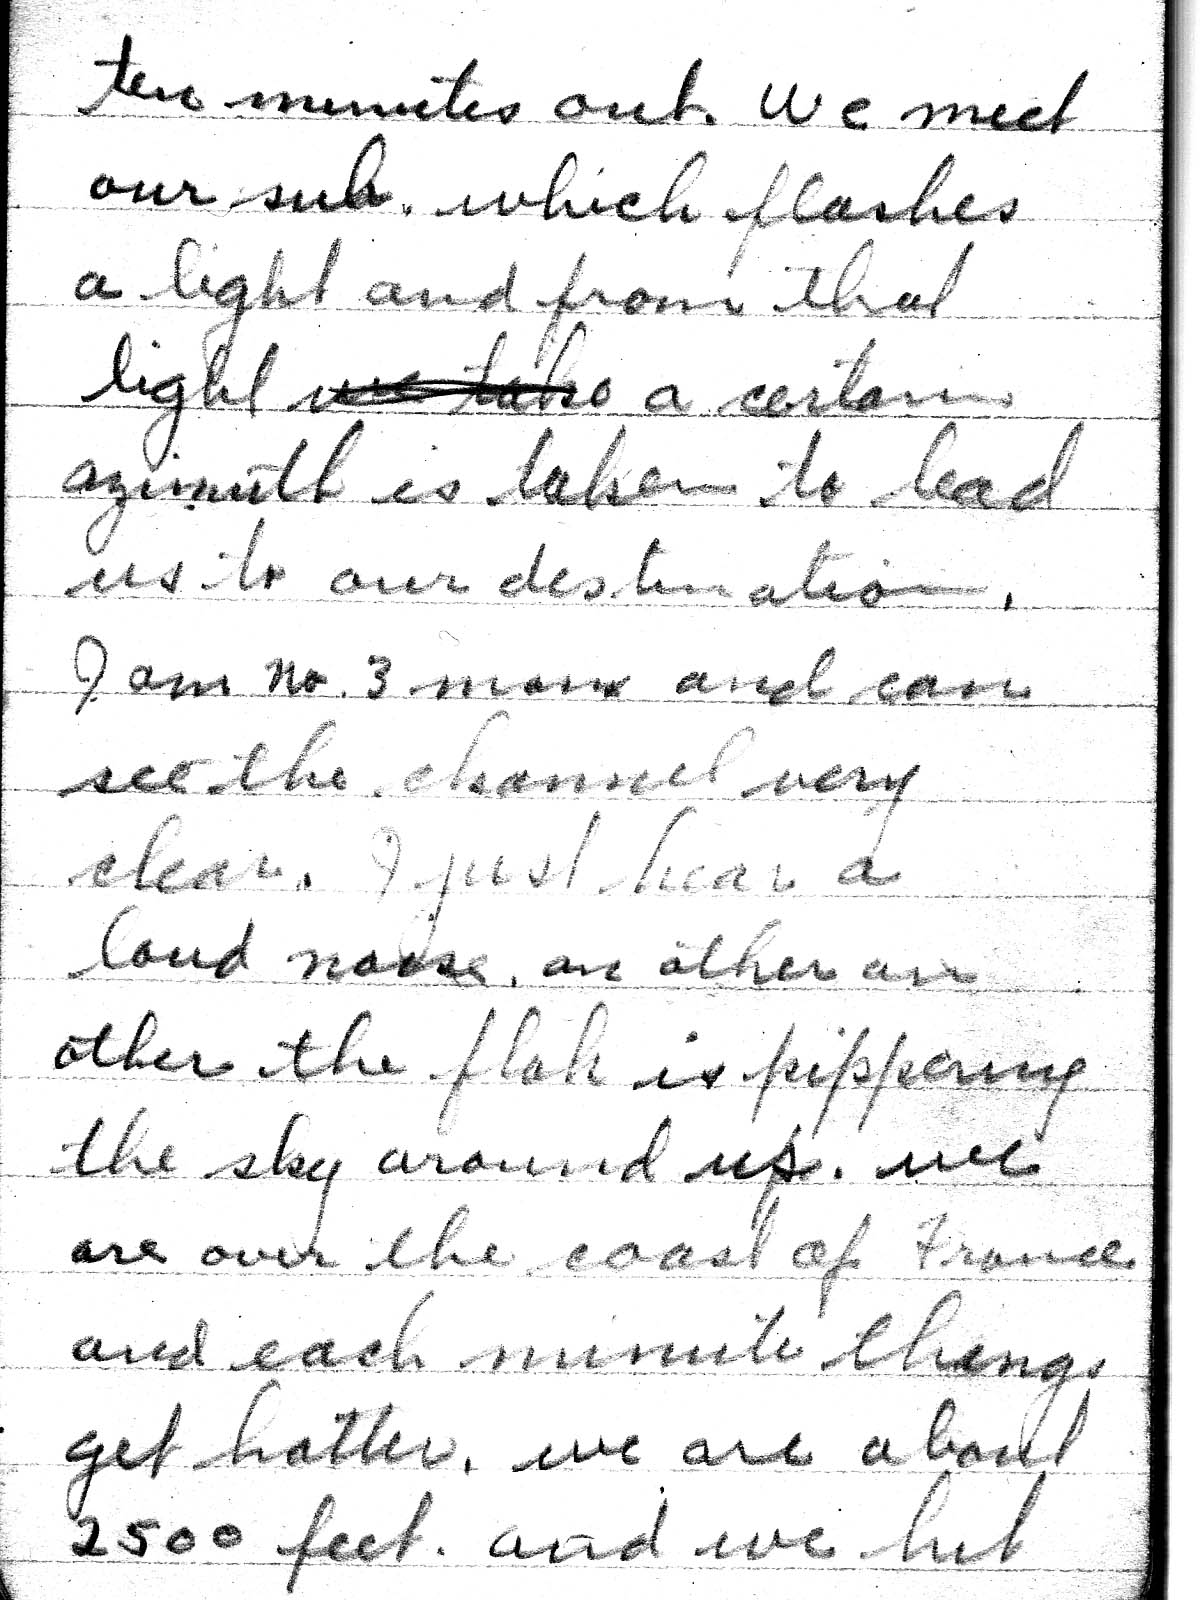 ten minutes out. We meet
our sub. which flashes
a light and from that
light we take a certain
azimuth is taken to lead
us to our destination.
I am no. 3 man and can
see the channel very
clear. I just hear a
loud noise, an other an
other the flak is pippering
the sky around us. we
are over the coast of France
and each minute things
get hotter, we are about
2500 feet. and we hit